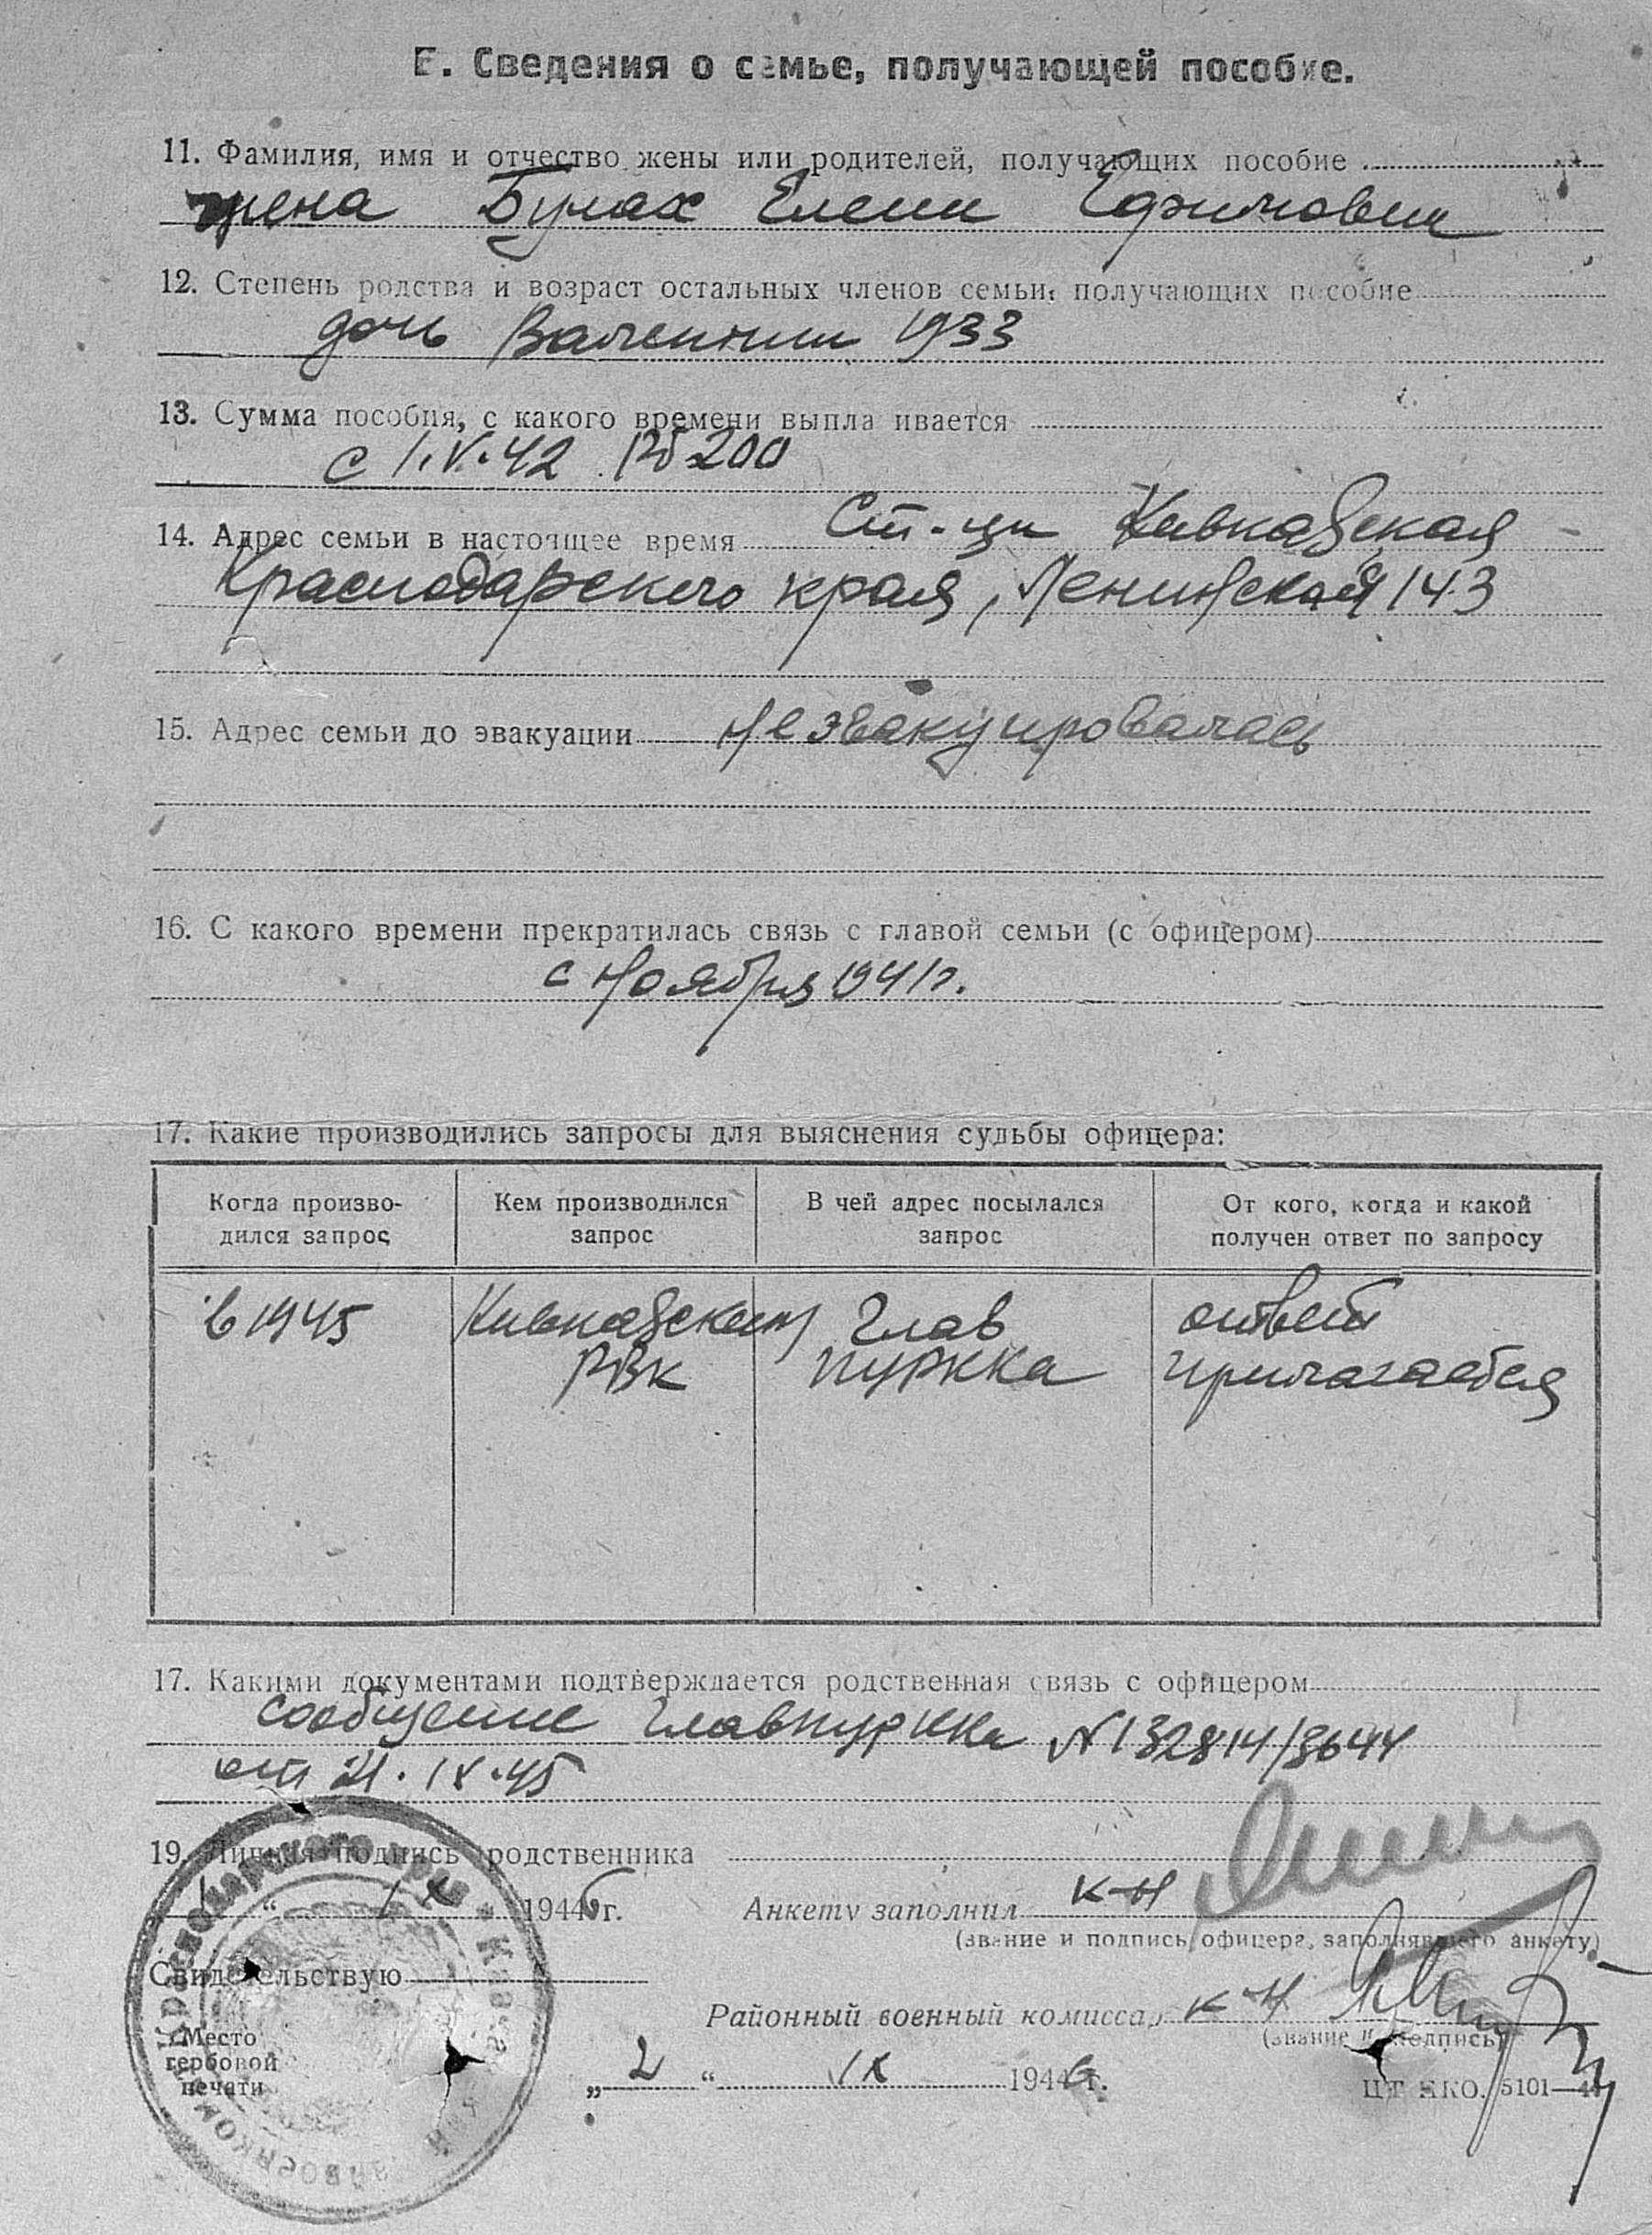 Е. Сведения о семье, получающей пособие.
11. Фамилия, имя и отчество жены или родителей, получающих пособие
жена Булах Елена Ефимовна
12. Степень родства и возраст остальных членов семьи, получающих пособие
дочь Валентина 1933
13. Сумма пособия, с какого времени выпла ивается
с 1.V.42 Рб 200
14. Адрес семьи в настоящее время Ст-ца Кавказская
Краснодарского края, Ленинская 143
15. Адрес семьи до эвакуации не эвакуировалась
16. С какого времени прекратилась связь с главой семьи (с офицером)
с ноября 1941 г.
17. Какие производились запросы для выяснения судьбы офицера:
Когда произво-
дился запрос
Кем производился
запрос
В чей адрес посылался
запрос
От кого, когда и какой
получен ответ по запросу
в 1945
Кавказским
РВК
Глав
пуркка
ответ
прилагается
17. Какими документами подтверждается родственная связь с офицером
сообщение главпуркка N 132814/3644
от 21.IX.45
19. Личная подпись родственника
" IX 1946 г.
Анкету заполнил к-н
(звание и подпись офицера, заполнявшего анкету)
Свидетельствую
Районный военный комиссар к-н
(звание и подпись)
Место
гербовой
печати
„ 2 “ IX 1946 г.
ЦТ НКО. 5101—44
Краснодарского края * Кавказский райвоенкомат